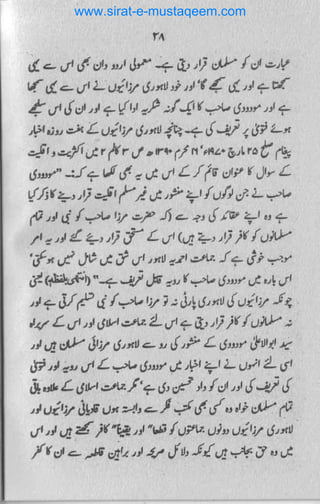 www.sirat-e-mustaqeem.com
۲۸
عبارت ان کو مسلمان قرار دیتی ہے۔ معمولی اردو دان بھی اس سے یہی
سمجھتا ہے اور یہی سمجھے گا، اور خود لاہوری مرزائیوں نے اس سے یہی سمجھا
ہے اور مودودی صاحب کا ایک گونہ شکریہ ادا کیا ہے اور ان کی اس سلجھے
ہوئے فتویٰ پر تعریف کی ہے۔ چنانچہ لاہوری مرزائیوں کے ہفت روزہ اخبار
پیغام صلح ۲۵ مارچ ۱۹۷۰ء ۱۶ محرم ۱۳۹۰ھ ص ۳ کالم ۲ میں اکثریت و اقلیت
کے سوال کے عنوان کو قائم کر کے اس میں یہ بھی لکھا ہے کہ۔ "مودودی
صاحب نے جن لوگوں کو اپنے منشور میں غیر مسلم اقلیت قرار دینے کا ذکر کیا
ہے وہ اپنے عقائد کی وجہ سے (کہ حضرت مرزا صاحب کو نبی اور تمام
مسلمانوں کو کافر قرار دیتے ہیں) اس کے مستحق قرار دیئے گئے ہیں اور یہ امر
موجب خوشی ہے کہ جماعت احمدیہ لاہور اس شق میں شامل نہیں ہو سکتی'
اس بارہ میں مودودی صاحب کا رویہ قابل تعریف ہے۔" (انتہیٰ بلفظہ) یعنی
چونکہ مرزائیوں کی لاہوری پارٹی نہ تو مرزا صاحب کو نبی تسلیم کرتی ہے اور
نہ مسلمانوں کو کافر قرار دیتی ہے اس لئے جماعت اسلامی اور اس کے سربراہ
سید ابوالاعلیٰ مودودی کی منشور کی رو سے لاہوری مرزائی مسلمان ہیں اور
اسی لئے انہوں نے اپنے اخبار میں مودودی صاحب کے اس رویہ اور فتویٰ
کی تعریف کی اور ان کو داد تحسین دی ہے، مگر جماعت اسلامی کے علاوہ باقی
تمام مسلمان خواہ وہ کسی بھی مکتب فکر سے وابستہ ہوں قادیانی مرزائیوں اور
لاہوری مرزائیوں دونوں جماعتوں کو قطعاً" اور یقیناً" کافر سمجھتے ہیں اور اس
میں وہ حق بجانب ہیں کیونکہ دلائل صریحہ اور براہین قاطعہ سے ان کا کفر